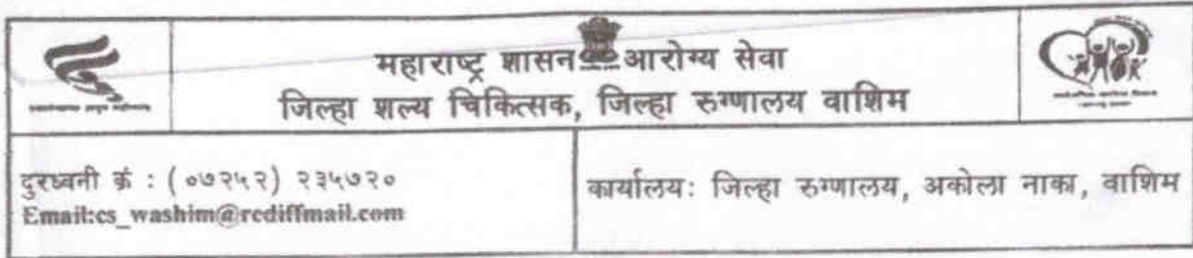 महाराष्ट्र शासन आरोग्य सेवा
जिल्हा शल्य चिकित्सक, जिल्हा रुग्णालय वाशिम
दुरध्वनी क्रं : (०७२५२) २३५७२०
Email:cs_washim@rediffmail.com
कार्यालयः जिल्हा रुग्णालय, अकोला नाका, वाशिम